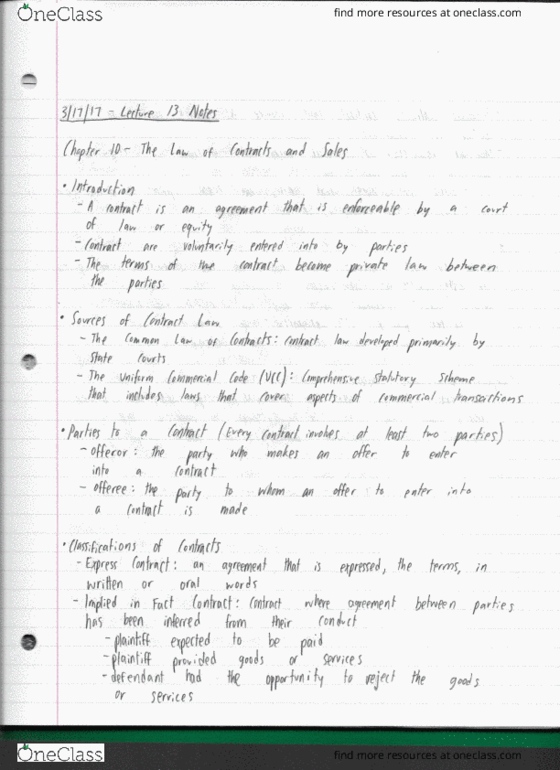 OneClass
find more resources at oneclass.com
3/17/17 - Lecture 13 Notes
Chapter 10 - The Law of Contracts and Sales
• Introduction
- A contract is an agreement that is enforceable by a court
of law or equity
- Contract are voluntarily entered into by parties
- The terms of the contract become private law between
the parties
• Sources of Contract Law
- The Common Law of Contracts: contract law developed primarily by
State courts
- The Uniform Commercial Code (UCC): Comprehensive Statutory Scheme
that includes laws that cover aspects of commercial transactions
• Parties to a Contract (Every contract involves at least two parties)
- offeror: the party who makes an offer to enter
into a contract
- offeree: the party to whom an offer to enter into
a contract is made
• Classifications of Contracts
- Express Contract: an agreement that is expressed, the terms, in
written or oral words
- Implied in Fact Contract: Contract where agreement between parties
has been inferred from their conduct
- plaintiff expected to be paid
- plaintiff provided goods or services
- defendant had the opportunity to reject the goods
or services
OneClass
find more resources at oneclass.com